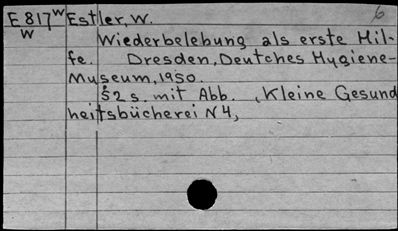 6
E 817 W Estler, W.
W Wiederbelebung als erste Hil-
fe. Dresden, Deutches Hygiene-
Museum, 1950.
52 s. mit Abb. , Kleine Gesund
heitsbücherei N 4,